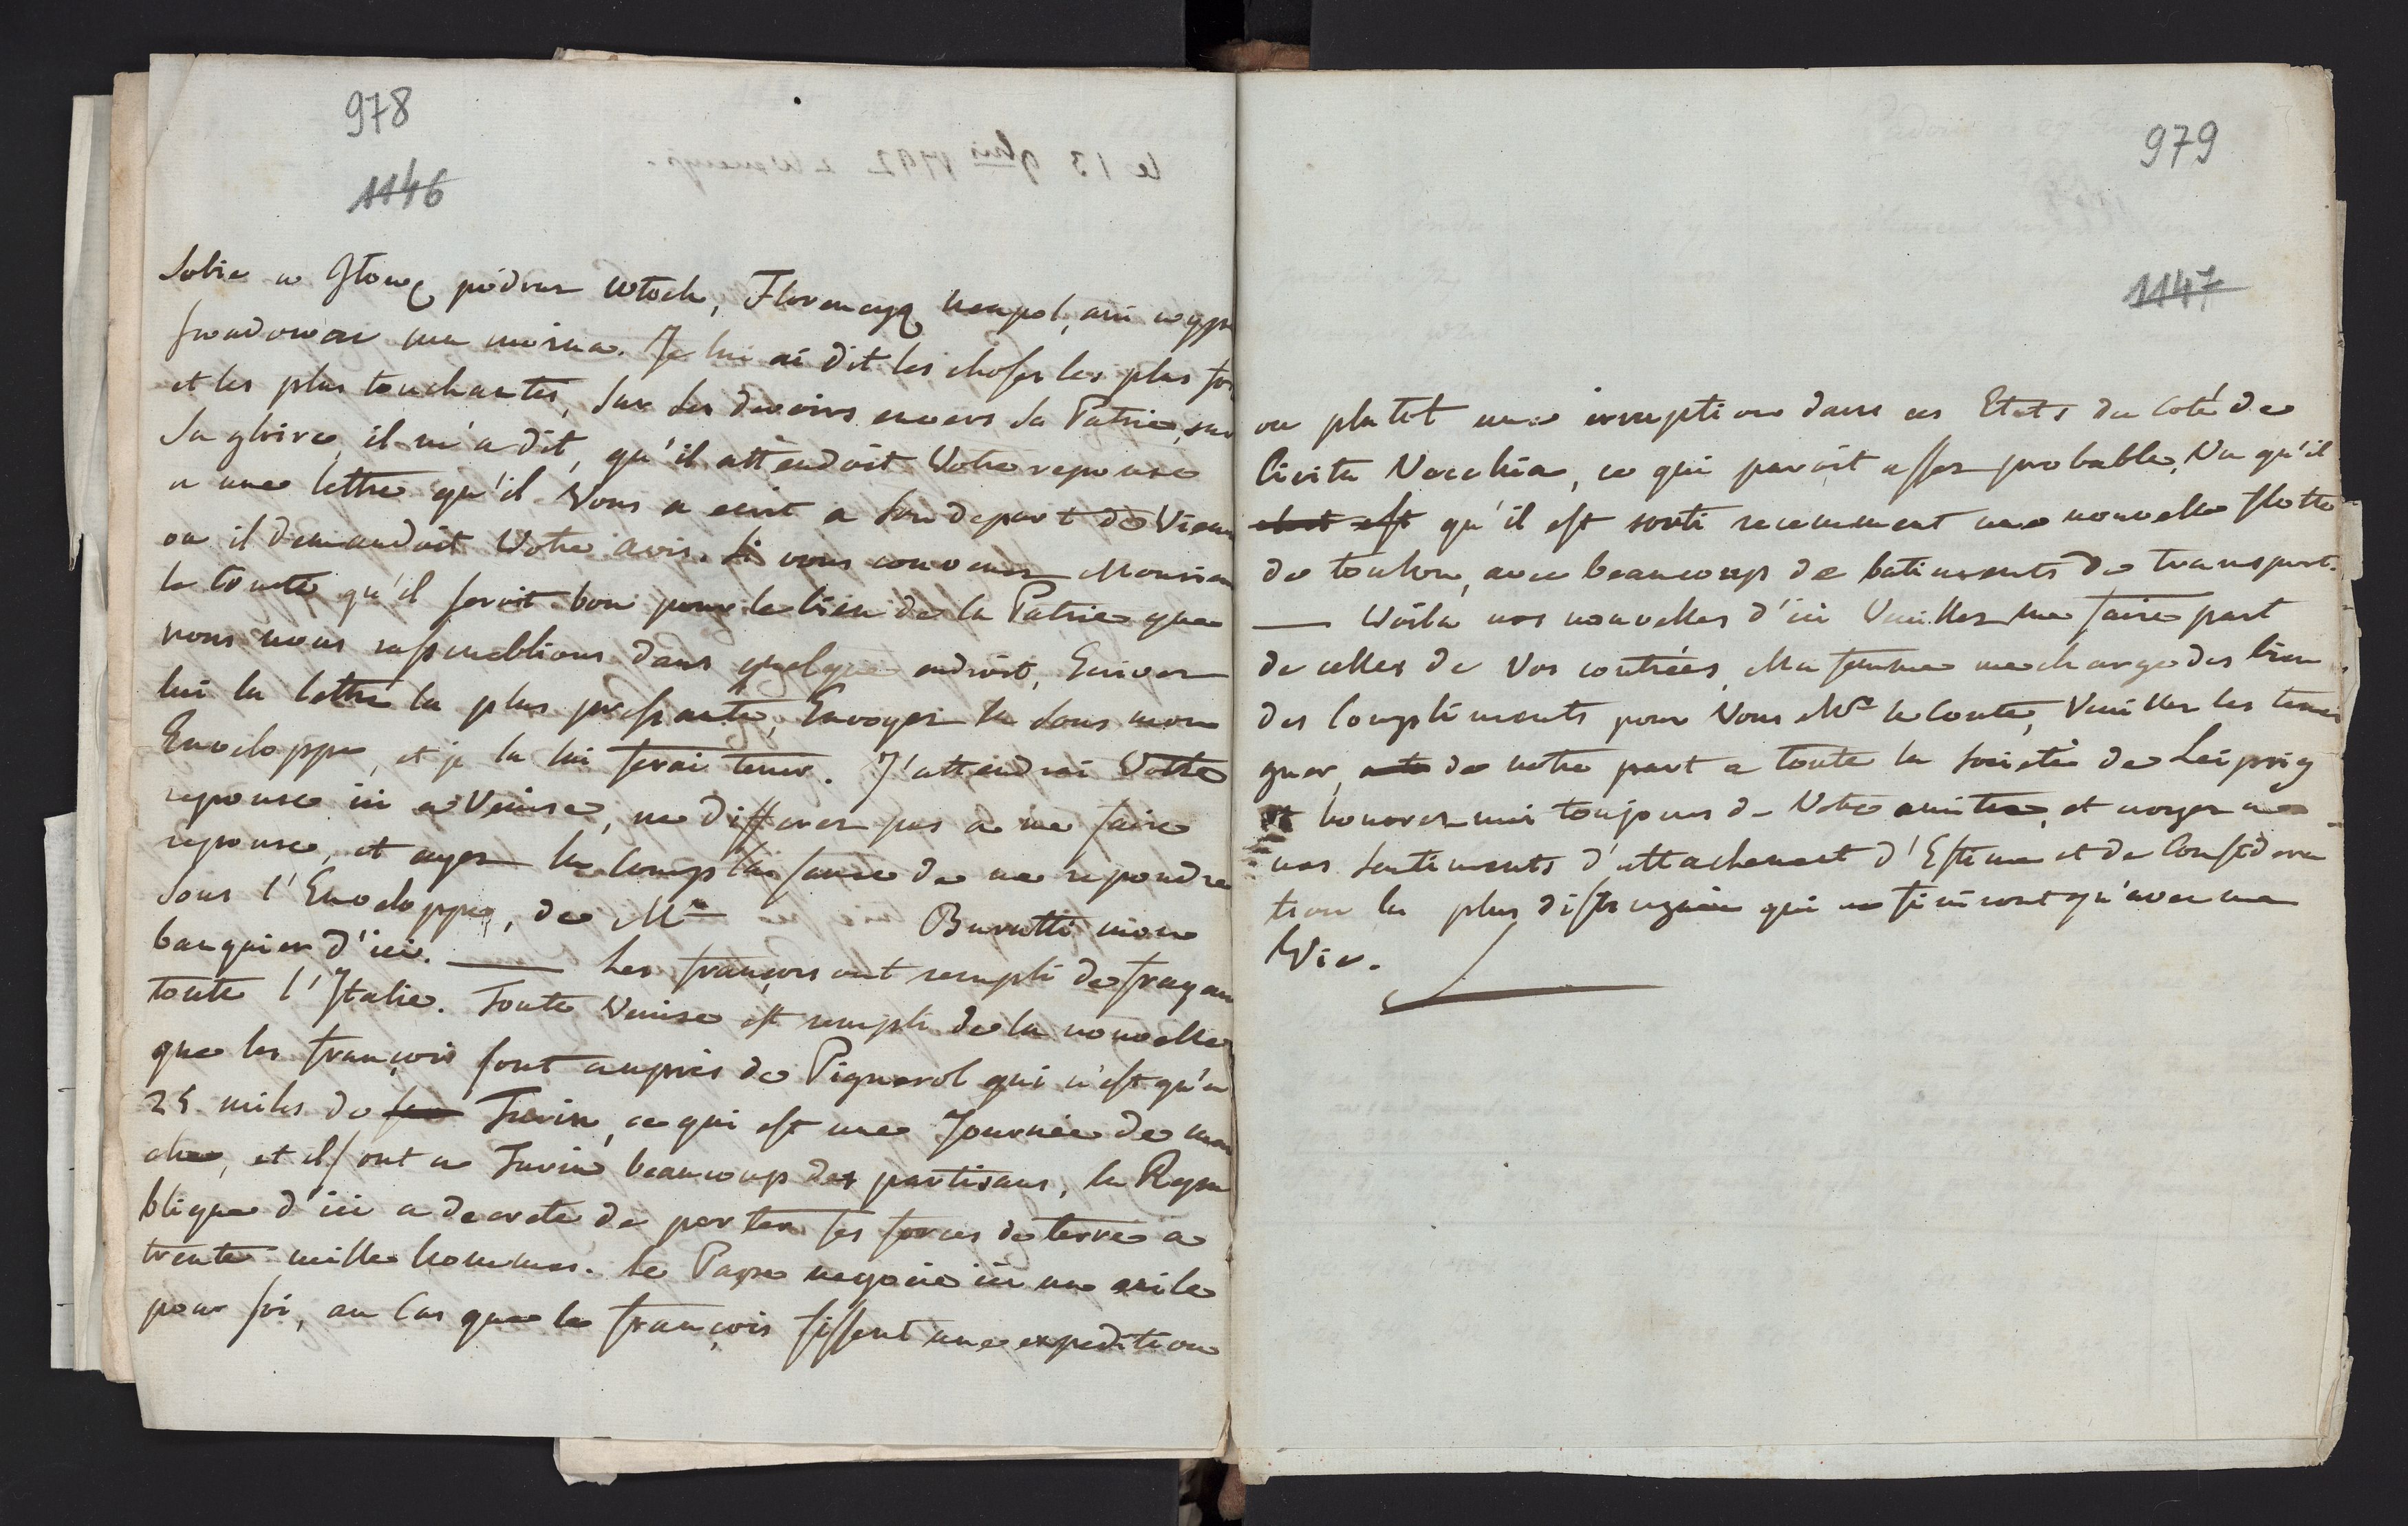 978
1146
Sobie w Głowę podruz Włoch, Florencyą Neapol, ani wypr
swadować mu można. Je lui ai dit les choses les plus for
et les plus touchantes, sur ses devoirs envers sa Patrie, sur
sa gloire, il m'a dit, qu'il attendoit Votre reponse
a une lettre qu'il Vous a ecrit a son depart de Vien
ou il demandoit Votre avis. Si vous convenez Monsieu
le Comte qu'il seroit bon pour le bien de la Patrie que
nous nous rassemblions dans quelque endroit, Ecrivez
lui la lettre la plus pressante, Envoyez la sous mon
Enveloppe, et je la lui ferai tenir. J'attendrai Votre
reponse ici a Venise, ne differez pas a me faire
reponse, et ayez la complaisance de me repondre
sous l'Enveloppe, de Mr Buratti mon
banquier d'ici. — Les françois ont rempli de frayeur
toute l'Italie. Toute Venise est rempli de la nouvelle
que les françois sont auprès de Pignerol qui n'est qu'a
25 miles de Turin, ce qui est une Journée de mar
che, et ils ont a Turin beaucoup des partisans, la Repu
blique d'ici a decreté de porter ses forces de terre a
trente mille hommes. Le Pape negocie ici un asile
pour soi, au Cas que les françois fissent une expedition
979
1147
ou plutot une irruption dans ces Etats du coté de
Civita Vecchia, ce qui paroit assez probable, Vu qu'il
c'est est qu'il est sorti recemment une nouvelle flotte
de toulon, avec beaucoup de batiments de transport.
— Voila nos nouvelles d'ici Veuillez me faire part
de celles de Vos contrées, Ma femme me charge des bien
des Compliments pour Vous Mr le Comte, Veuillez les temoi
gner, de notre part a toute la societé de Leipzig
et honorez moi toujours de Votre amitie, et croyez a
mes sentiments d'attachement d'Estime et de Considera
tion la plus distinguée qui ne finiront qu'avec ma
Vie.